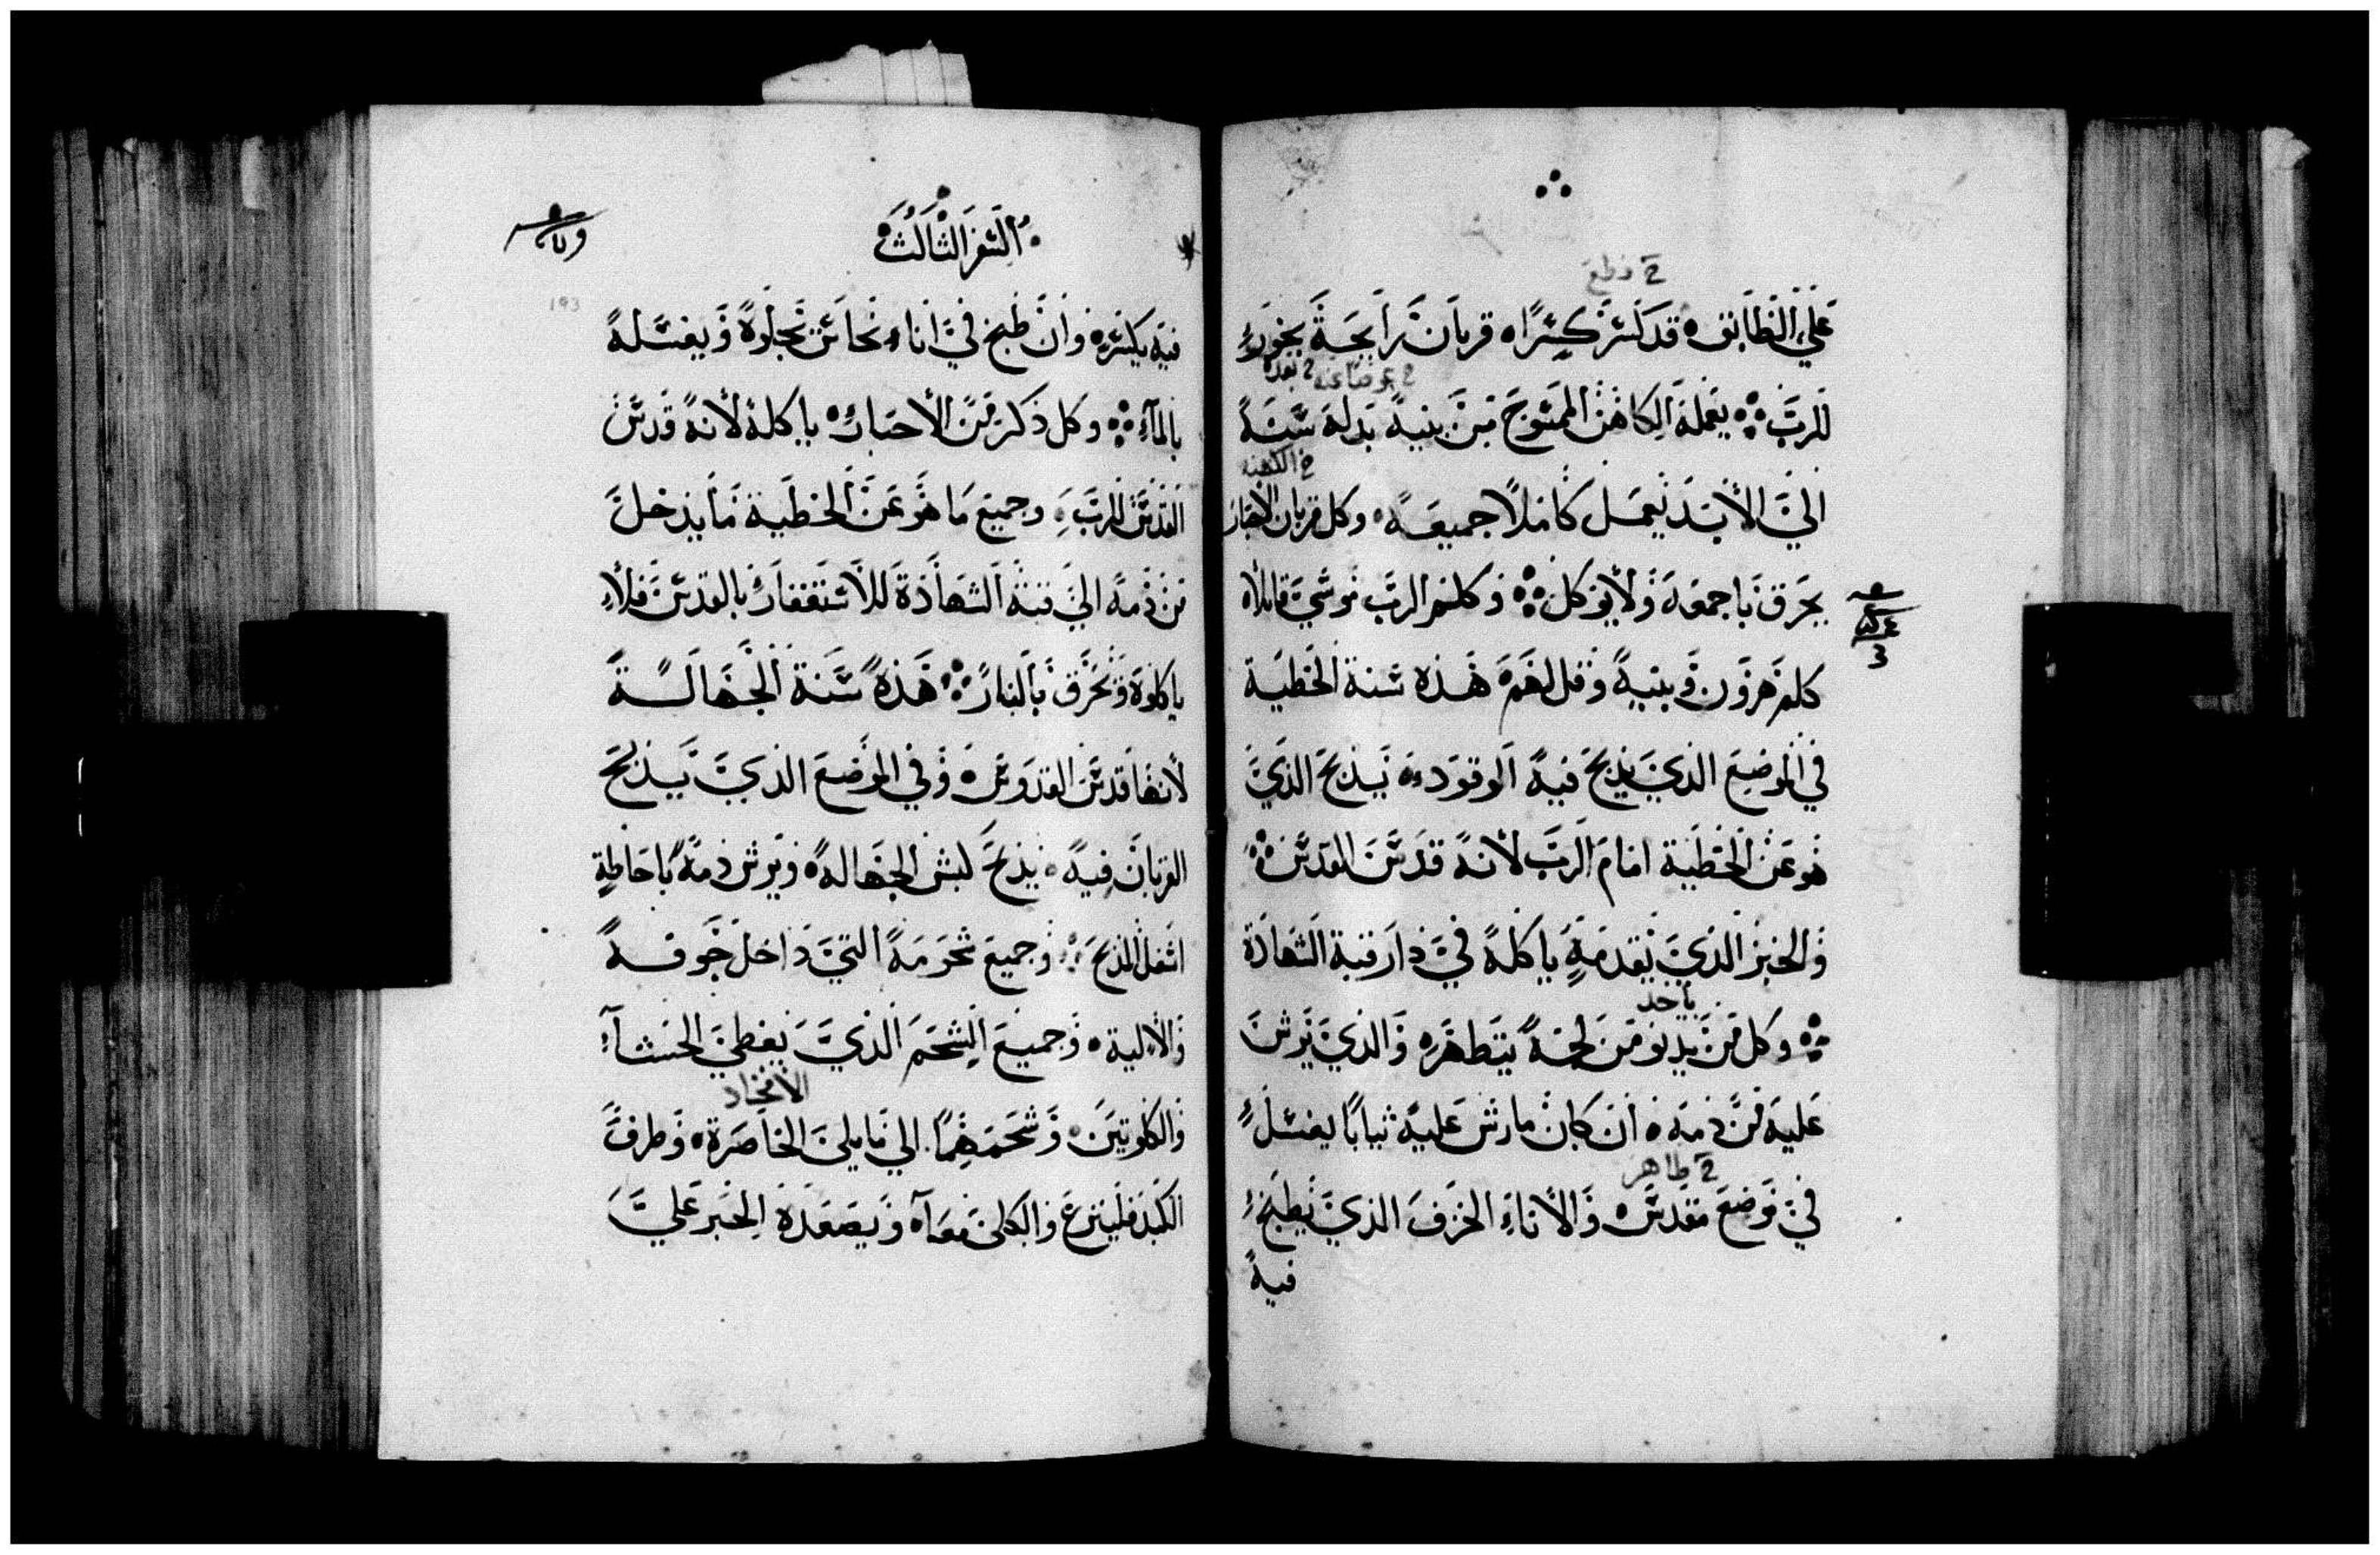 2 قطع
علي الطابق قد كسر كسرًا قربان رايحة بخور
للرب يعمله الكاهن الممسوح من بنيه بدله سنة
خ الكهنه
الي الابد يعمل كاملًا جميعه وكل قربان الاحبار
يحرق باجمعه ولا يوكل وكلم الرب موسي قايلًا
كلم هرون وبنيه وقل لهم هذه سنة الخطية
في الموضع الذي يذبح فيه الوقود يذبح الذي
هو عن الخطية امام الرب لانه قدس القدس
والخبر الذي يقدمه ياكله في دار قبة الشهادة
ياخد
وكل من يدنو من لحمه يتطهر والذي يرش
عليه من دمه ان كان ما رش عليه ثيابًا يغسل
2 طاهر
في موضع مقدس والاناء الخزف الذي يطبخ
فيه
السفر الثالث
193
فيه يكسر وان طبخ في اناء نحاس تجلوه ويغسله
بالماء وكل ذكر من الاحبار ياكله لانه قدس
القدس للرب وجميع ما هو عن الخطية ما يدخل
من دمه الي قبة الشهادة للاستغفار بالقدس فلا
ياكلوه وتحرق بالنار هذه سنة الجهالة
لانها قدس القدوس وفي الموضع الذي يذبح
القربان فيه يذبح كبش الجهاله ويرش دمه باحاطة
اسفل المذبح وجميع شحومه التي داخل جوفه
والالية وجميع الشحم الذي يغطي الحشا
الافخاد
والكلوتين وشحمهما الي ما يلي الخاصرة وطرف
الكبد فلينزع والكلي معا ويصعده الحبر علي